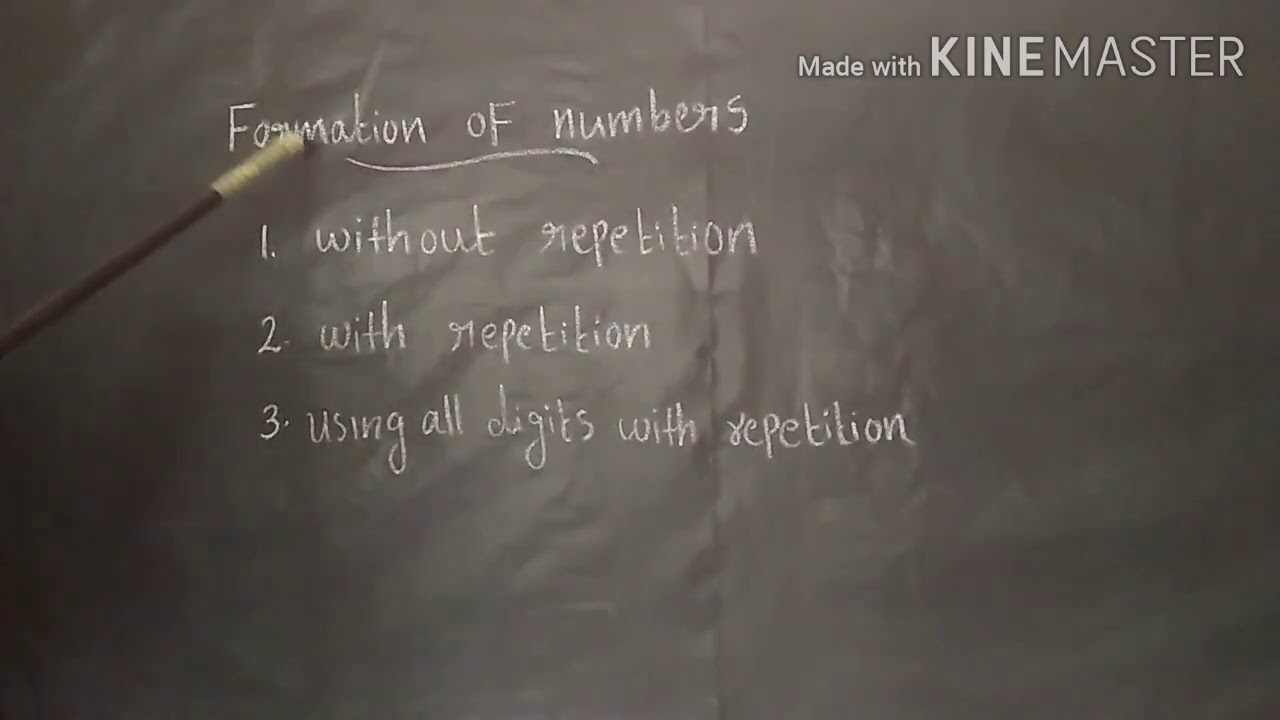 Made with KINEMASTER
Formation oF numbers
1. without repetition
2. with repetition
3. using all digits with repetition